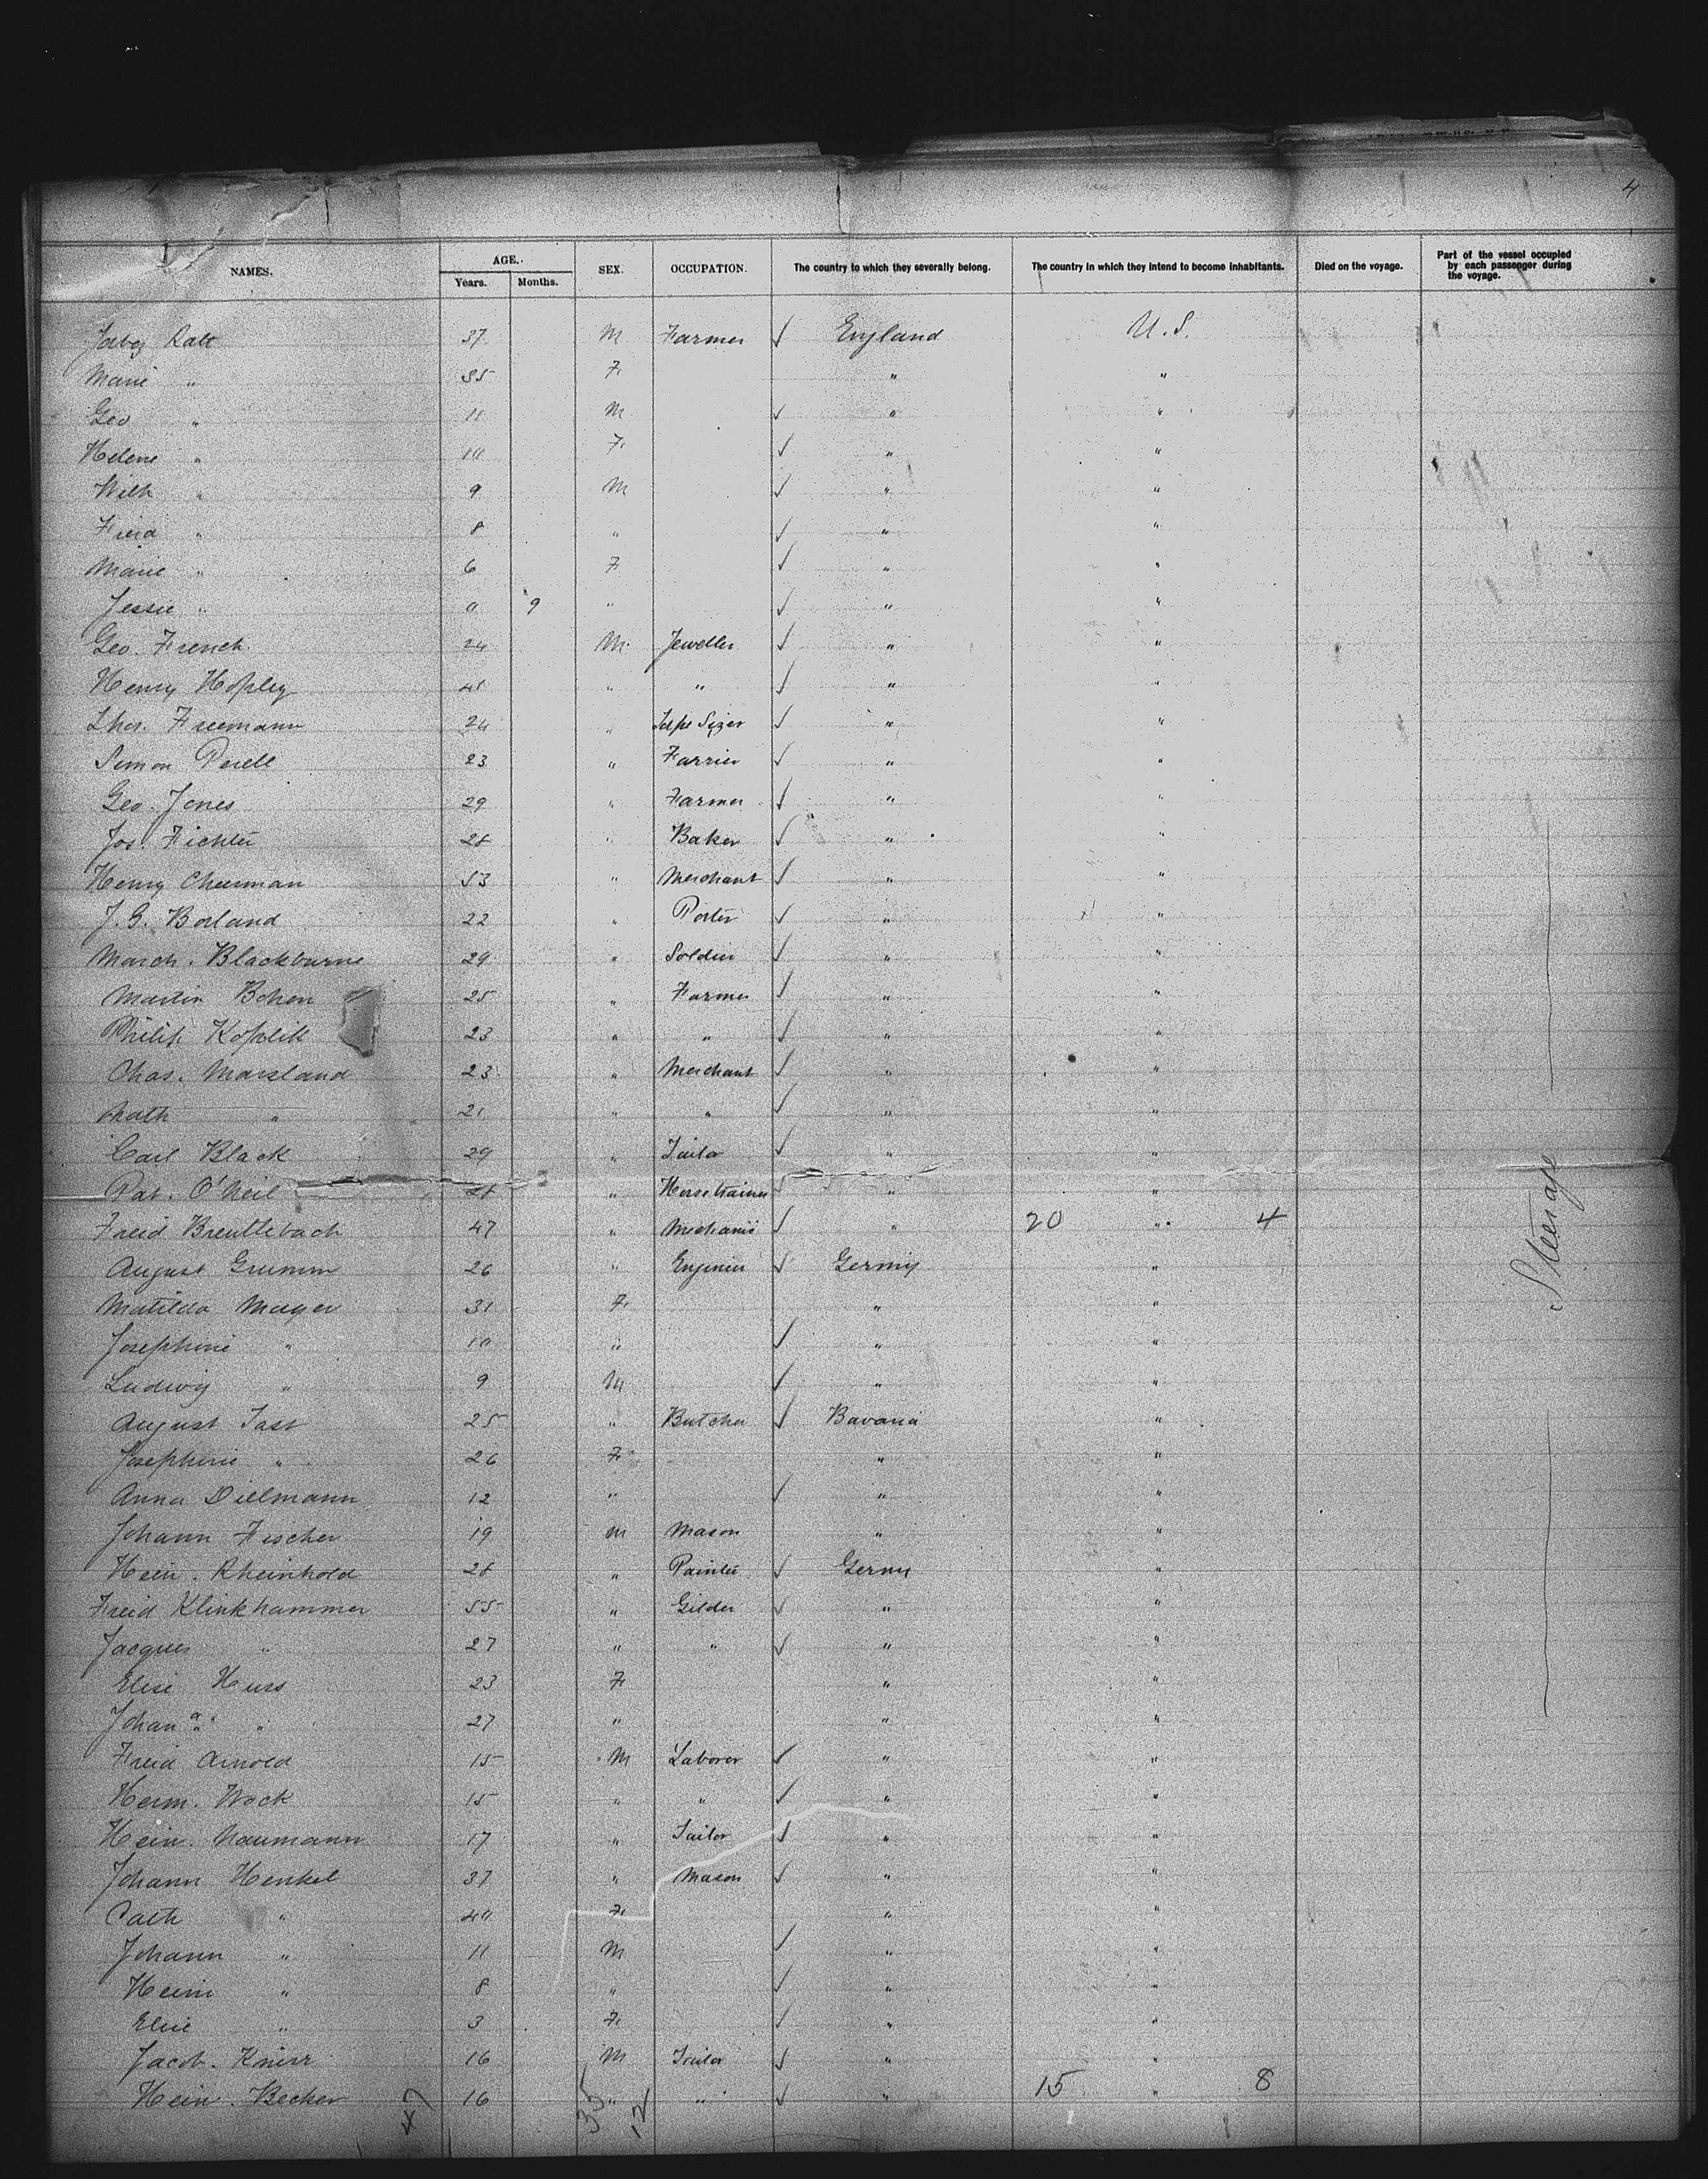 4
NAMES. AGE. Years. Months. SEX. OCCUPATION. The country to which they severally belong. The country in which they intend to become inhabitants. Died on the voyage. Part of the vessel occupied by each passenger during the voyage.
37 M Farmer England U.S.
Marie " 35 F. " "
Geo " 11 M " "
Helene " 10 F. " "
Wilh " 9 M " "
Fried " 8 " " "
Marie " 6 F. " "
Jessie " 0 9 " " "
Geo. French 24 M. Jeweller " "
Henry Hopley " " " "
Thos. Freemann 24 " " "
Simon 23 " Farrier " "
Geo. Jones 29 " Farmer " "
Jos. Fichter 28 " Baker " "
Henry Cheerman 53 " Merchant " "
J. G. Borland 22 " Porter " "
March. Blackburne 29 " Soldier " "
Martin Bohen 25 " Farmer " "
Philip Koplik 23 " " " "
Chas. Marsland 23 " Merchant " "
Math " 21 " " " "
Carl Black 29 " Tailor " "
Pat. O'Neil 28 " Horsetrainer " "
Fried Breuttebach 47 " Mechanic " 20 " 4
August Grumm 26 " Engineer Germy "
Matilda Mayer 31 F. " "
Josephine " 10 " " "
Ludwig " 9 M " "
August Tast 25 " Butcher Bavaria "
Josephine " 26 F. " "
Anna Dillmann 12 " " "
Johann Fischer 19 m Mason " "
Hein. Rheinhold 28 " Painter Germy "
Fried Klinkhammer 55 " Gilder " "
Jacques " 27 " " " "
Elise Huss 23 F " "
Johana " 27 " " "
Fried Arnold 15 M Laborer " "
Herm. Wock 15 " " " "
Hein. Naumann 17 " Tailor " "
Johann Henkel 37 " Mason " "
Cath " 40 F. " "
Johann " 11 M " "
Hein " 8 " " "
Elise " 3 F. " "
Jacob. Knierr 16 M Tailor " "
Hein. Becker 16 " " " 15 " 8
47 35 12
Steerage